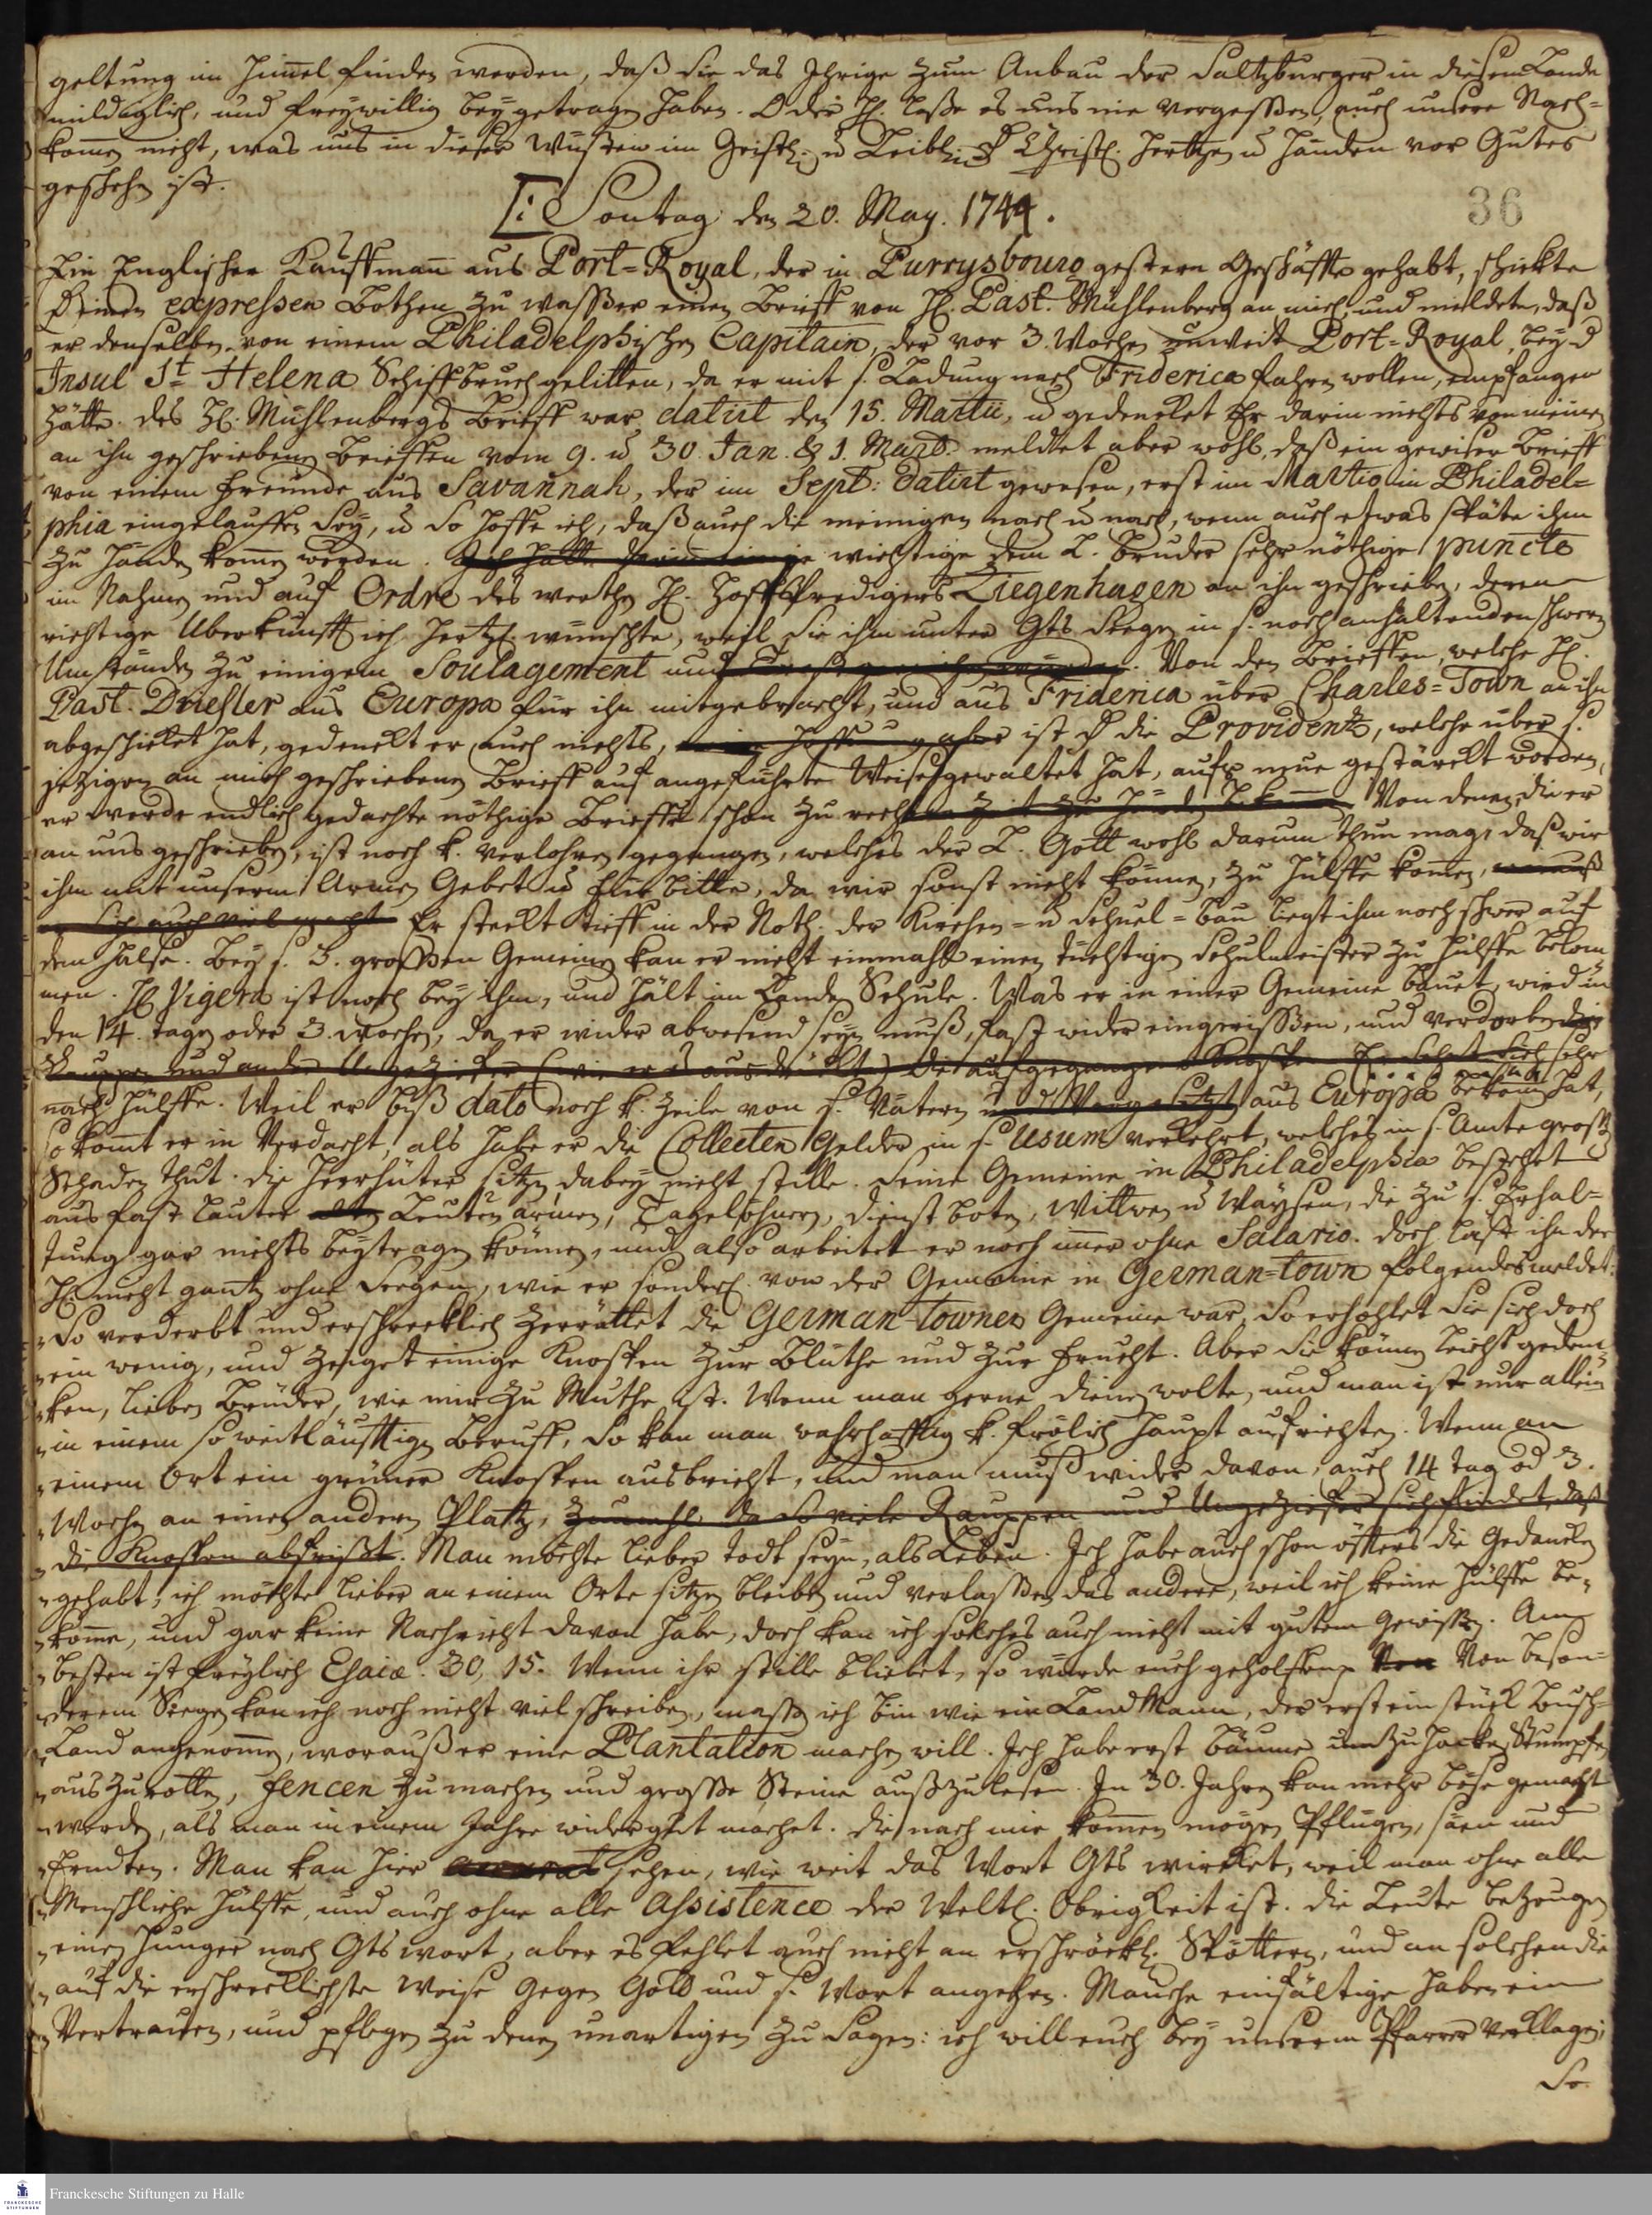 geltung im Himel finden werden, daß sie das Ihrige zum Anbau der Saltzburger in diesem Lande
mildiglich, und freywillig beygetragen haben. O der H. laße es uns nie vergeßen, auch unsere Nach=
komen nicht, was uns in dieser Wüsten im Geistl: u Leibl: Christl. Hertzen u Händen vor Gutes
geschehen ist.
36
[: Sontag den 20. May. 1744.
Ein Englischer Kauffman aus Port=Royal, der in Purrysbourg gestern Geschäffte gehabt, schickte
einen expressen Bothen zu waßer einen Brieff von H. Past. Mühlenberg an mich, und meldete, daß
er denselben von einem Philadelphischen Capitain, der vor 3. Wochen unweit Port=Royal, bey d
Insul St Helena Schiffbruch gelitten, da er mit s. Ladung nach Friderica fahren wollen, empfangen
hätte. des H. Mühlenbergs Brieff war datirt den 15. Martii, u gedencket Er darin nichts von meinen
an ihn geschriebenen Brieffen vom 9. u 30. Jan. & 1. Mart. meldet aber wohl, daß ein gewißer Brieff
von einem Freunde aus Savannah, der im Sept: datirt gewesen, erst im Martio in Philadel=
phia eingelauffen sey, u so hoffe ich, daß auch die meinigen nach u nach, wenn auch etwas späte ihm
zu Händen komen werden. Ich hatte darin einige wichtige dem L. Bruder sehr nöthige puncte
im Nahmen und auf Ordre des werthen H. Hoffpredigers Ziegenhagen an ihn geschrieben, deren
richtige Uberkunfft ich hertzl. wünschte, weil sie ihm unter Gts Seegen in s. noch anhaltenden schweren
Umständen zu einigem Soulagement und . Von den Brieffen, welche H.
Past. Driesler aus Europa für ihn mitgebracht, und aus Friderica über Charles=Town an ihn
abgeschickt hat, gedenckt er auch nichts, meine Hoffnung aber ist d die Providentz, welche über s.
jezigen an mich geschriebenen Brieff auf angeführte Weise gewaltet hat, aufs neue gestärckt worden,
er werde endlich gedachte nöthige Brieffe schon zu rechter Zeit zu Händen bekommen. Von denen, die er
an uns geschrieben, ist noch k. verlohren gegangen, welches der L. Gott wohl darum thun mag, daß wir
ihm mit unserm Armen Gebet u Fürbitte, da wir sonst nicht können, zu Hülffe komen, woraus
er sich auch viel macht. Er steckt tieff in der Noth. der Kirchen= u Schul=bau liegt ihm noch schwer auf
dem Halse. Bey s. 3. großen Gemeinen kan er nicht einmahl einen tüchtigen Schulmeister zu Hülffe bekom
men. H. Vigera ist noch bey ihm, und hält im Lande Schule. Was er in einer Gemeine bauet, wird in
den 14. tagen oder 3. wochen, da er wider abwesend seyn muß, fast wider eingerißen, und verdorben die
Rauppen und ander Ungeziefer (wie er es ausdrückt) die aufgegangene Knospe. Er sehnet sich sehr
nach Hülffe. Weil er biß dato noch k. Zeile von s. Vätern und Vorgesetzten aus Europa bekomen hat,
so komt er in Verdacht, als habe er die Collecten Gelder in s. Usum verkehrt, welches in s. Amte großen
Schaden thut. die Herrhüter sitzen dabey nicht stille. Seine Gemeine in Philadelphia bestehet
aus fast lauter alten Leuten armen, Tagelöhnern, dienstboten, Wittwen u Waysen, die zu s. Erhal=
tung gar nichts beytragen können, und also arbeitet er noch imer ohne Salario. doch läst ihn der
H. nicht gantz ohne Seegen, wie er sonderl. von der Gemeine in German=Town folgendes meldet:
"So verderbt und erschrecklich zerrüttet die German-Towner Gemeine war, so erhohlet sie sich doch
"ein wenig, und zeiget einige Knospen zur Blüthe und zur Frucht. Aber sie können leicht geden
"ken, lieben Brüder, wie mir zu Muthe ist. Wenn man gerne dienen wolte, und man ist nur allein
"in einem so weitläufftigen Beruff, so kan man wahrhafftig k. frölich Haupt aufrichten. Wenn an
"einem Ort ein grüner Knospen ausbricht, und man muß wider davon, auch 14 tag od 3.
"Wochen an einen andern Platz, zumahl da so viele Rauppen und Ungeziefer sich findet, daß
"die Knospen abfrißt. Man möchte lieber todt seyn, als Leben. Ich habe auch schon öffters die Gedancken
"gehabt, ich möchte lieber an einem Orte sitzen bleiben und verlaßen das andere, weil ich keine Hülffe be=
"komme, und gar keine Nachricht davon habe, doch kan ich solches auch nicht mit gutem Gewißen. Am
"besten ist freylich Esaiæ. 30, 15. Wenn ihr stille bliebet, so würde euch geholffen. Von Von beson=
"derem Seegen kan ich noch nicht viel schreiben, maßen ich bin wie ein Land Mann, der erst ein stück Busch=
"Land angenomen, woraus er eine Plantation machen will. Ich habe erst Bäume umzuhacken, Stumpfen
"auszurotten, fencen zu machen und große Steine außzulesen. In 30. Jahren kan mehr böse gemacht
"werden, als man in einem Jahre wider gut machet. die nach mir komen mögen Pflügen, säen und
"Erndten. Man kan hier accurat sehen, wie weit das Wort Gts wircket, weil man ohne alle
"Menschliche Hülffe, und auch ohne alle Assistence der Weltl. Obrigkeit ist. die Leute bezeugen
"einen Hunger nach Gts wort, aber es fehlet auch nicht an erschröckl. Spöttern, und an solchen die
"auf die erschrecklichste Weise gegen Gott und s. Wort angehen. Manche einfältige haben ein
"Vertrauen, und pflegen zu denen unartigen zu sagen: ich will euch bey unserm Pfarrer verklagen;
So
Franckesche Stiftungen zu Halle